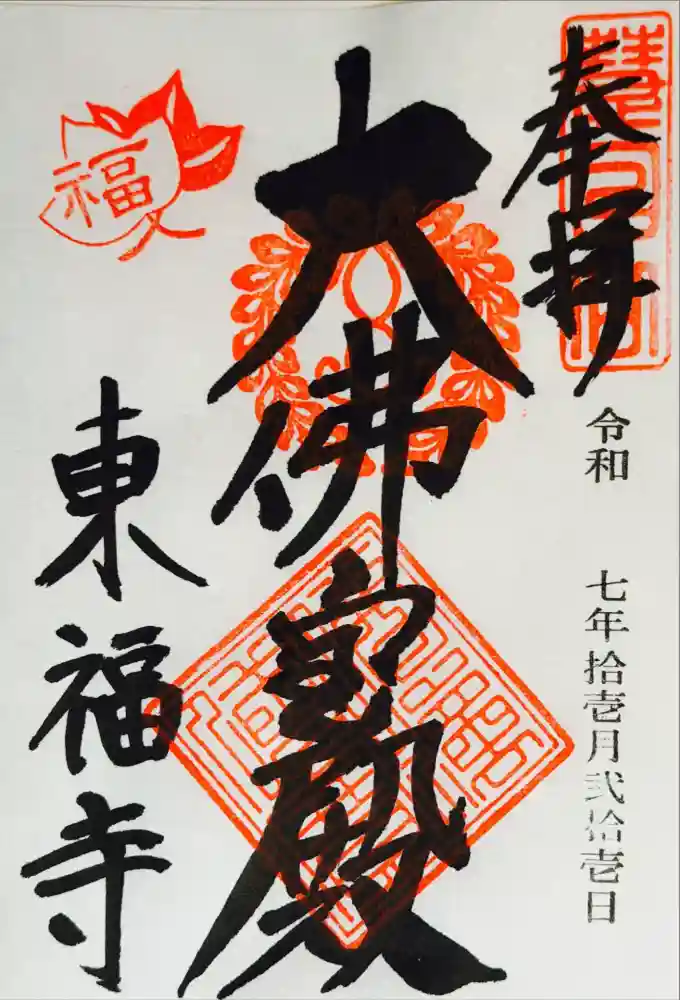 奉拝
慧日山
令和 七年拾壱月弐拾壱日
大佛宝殿
福
東福寺